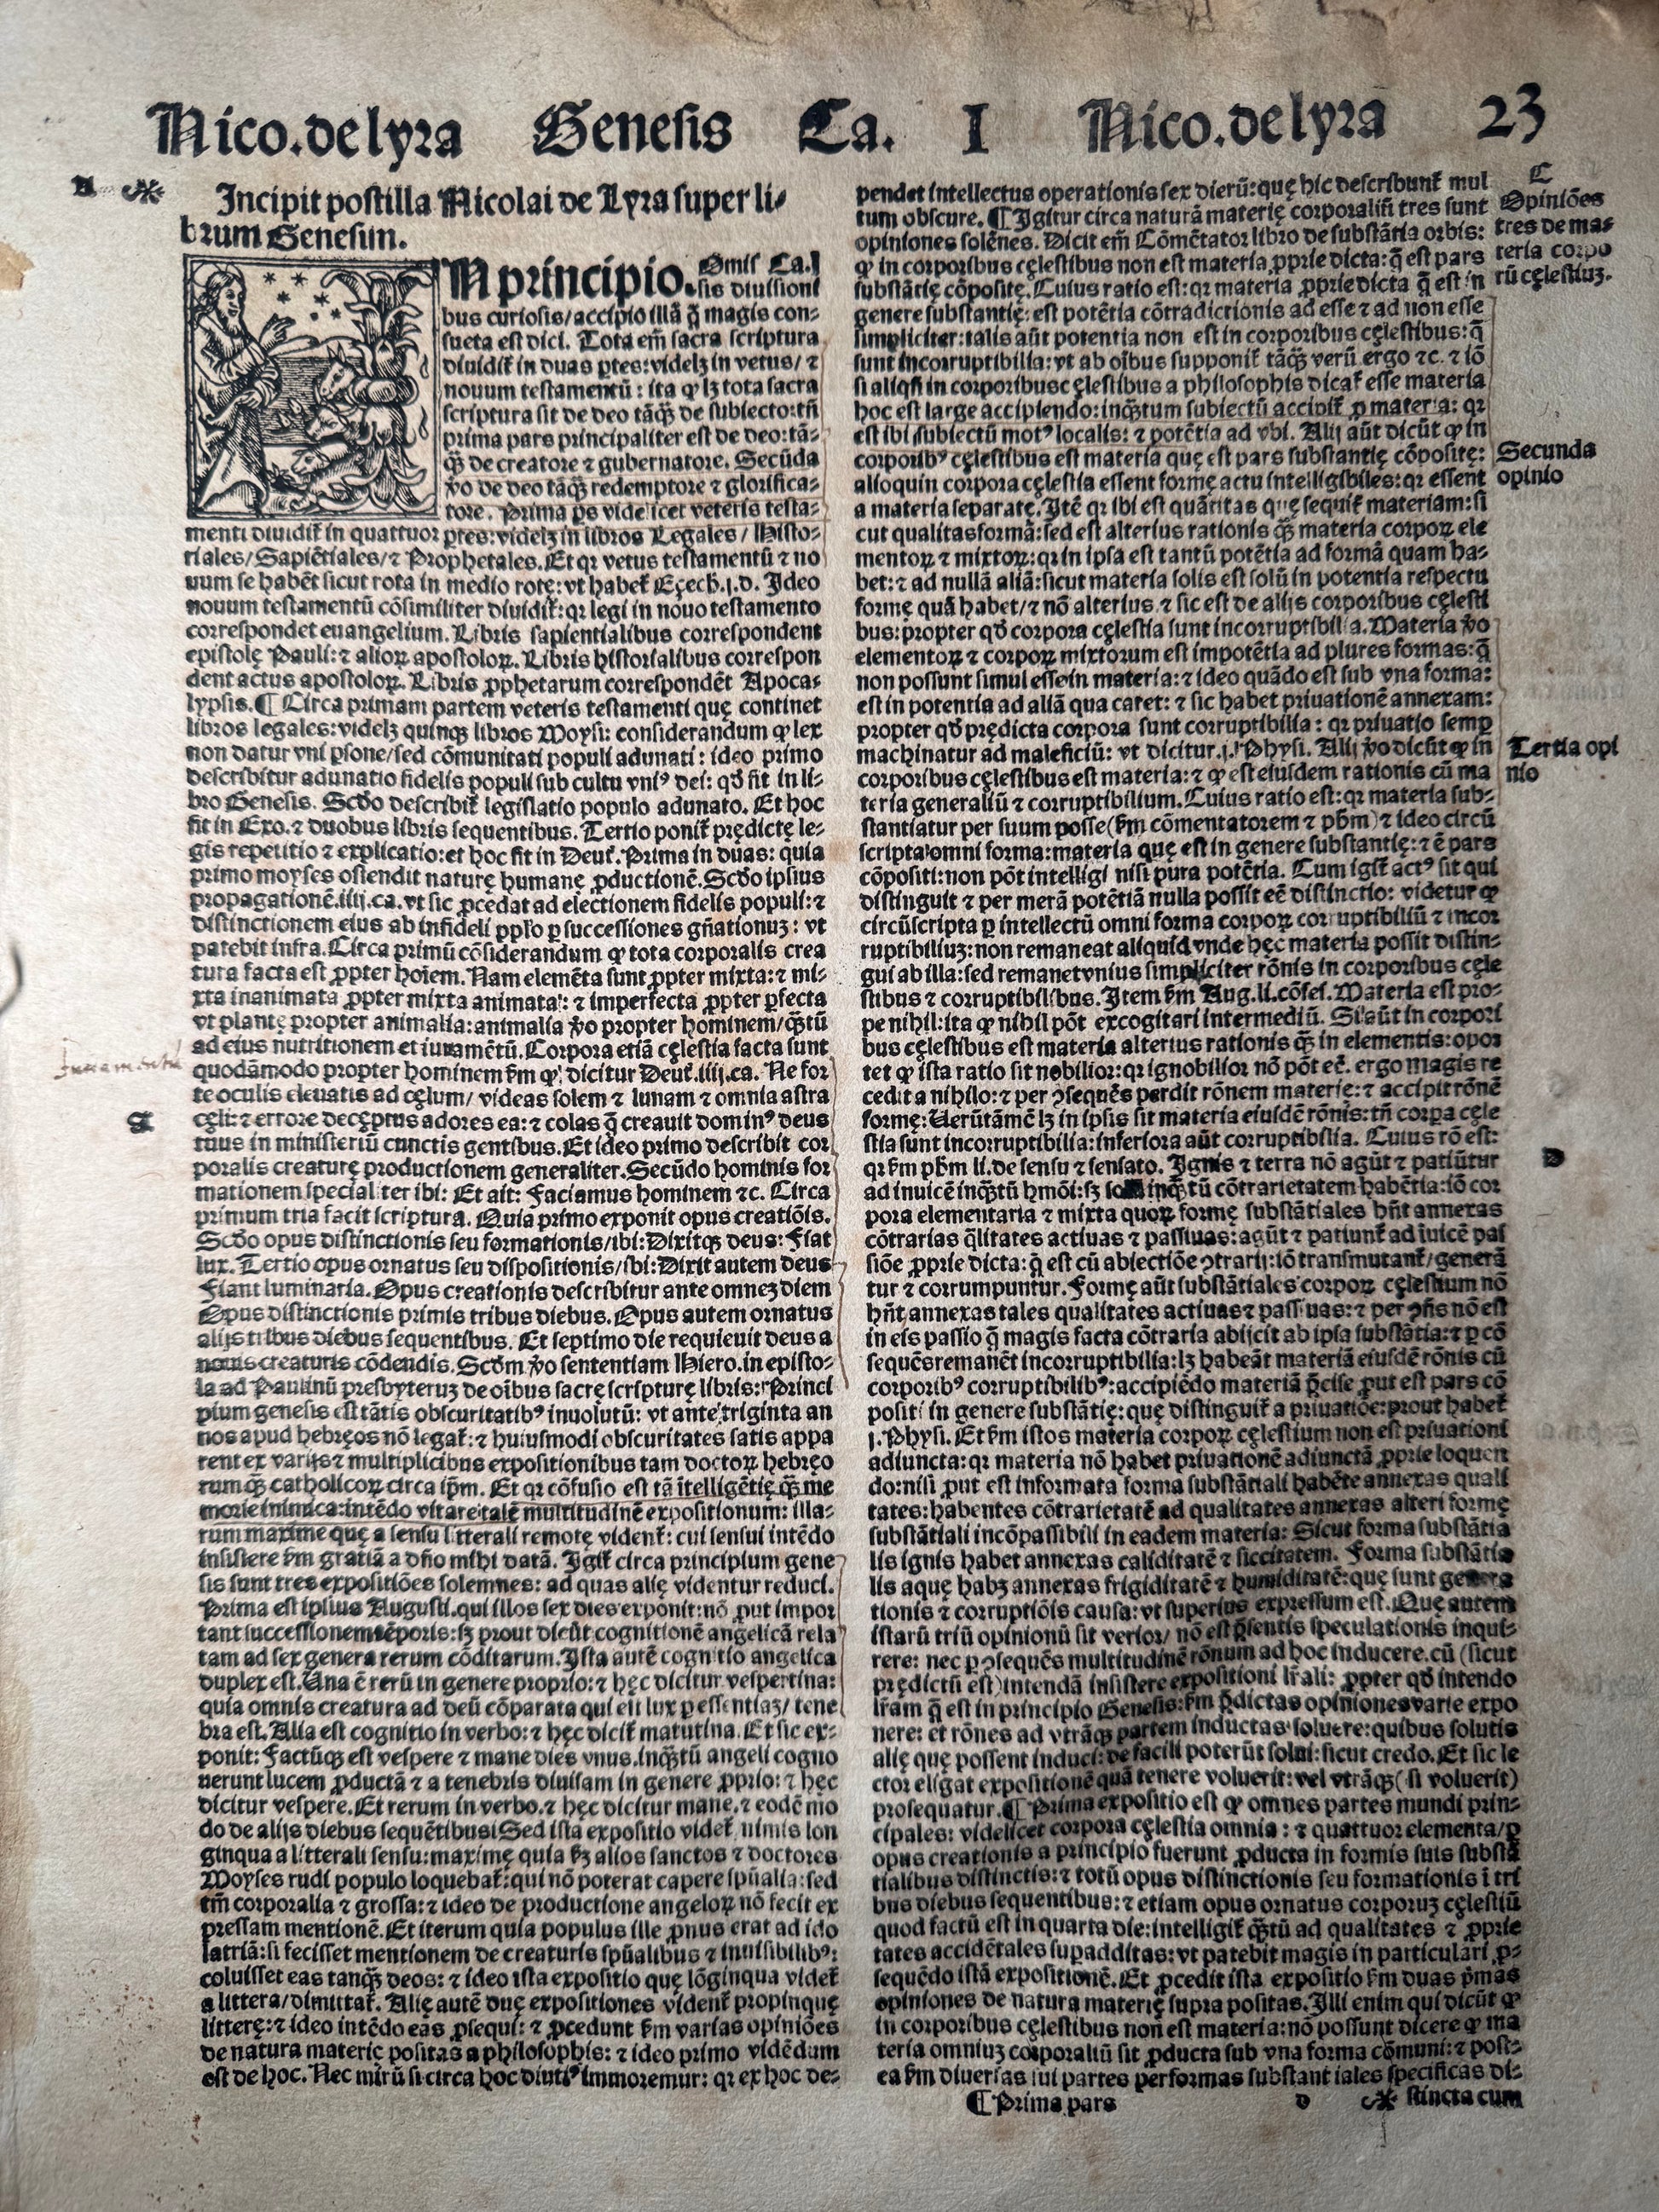 Nico. de lyra Genesis Ca. I Nico. de lyra 23
Incipit postilla Nicolai de Lyra super li-
brum Genesim.
N principio. Omis Ca. I
sis diuisioni
bus curiosis/accipio illã q̃ magis con-
sueta est dici. Tota em̃ sacra scriptura
diuidit̃ in duas ptes: videlꝫ in vetus/ ⁊
nouum testamentũ: ita ꝙ lꝫ tota sacra
scriptura sit de deo tãq̃ȝ de subiecto: tñ
prima pars principaliter est de deo: tã-
q̃ȝ de creatore ⁊ gubernatore. Secũda
ṽo de deo tãq̃ȝ redemptore ⁊ glorifica-
tore. Prima ps videlicet veteris testa-
menti diuidit̃ in quattuor ptes: videlꝫ in libros Legales/ Histo-
riales/ Sapiẽtiales/ ⁊ Prophetales. Et qꝛ vetus testamentũ ⁊ no
uum se habẽt sicut rota in medio rotę: vt habet̃ Eçech. j. d. Ideo
nouum testamentũ cõsimiliter diuidit̃: qꝛ legi in nouo testamento
correspondet euangelium. Libris sapientialibus correspondent
epistolę Pauli: ⁊ alioꝝ apostoloꝝ. Libris historialibus correspon
dent actus apostoloꝝ. Libris ꝓphetarum correspondẽt Apoca-
lypsis. ¶ Circa primam partem veteris testamenti quę continet
libros legales: videlꝫ quinqꝫ libros Moysi: considerandum ꝙ lex
non datur vni psone/ sed cõmunitati populi adunati: ideo primo
describitur adunatio fidelis populi sub cultu vniꝰ dei: qđ fit in li-
bro Genesis. Scđo describit̃ legislatio populo adunato. Et hoc
fit in Exo. ⁊ duobus libris sequentibus. Tertio ponit̃ prędictę le-
gis repetitio ⁊ explicatio: et hoc fit in Deut̃. Prima in duas: quia
primo moyses ostendit naturę humanę ꝓductionẽ. Scđo ipsius
propagationẽ. iiij. ca. vt sic ꝓcedat ad electionem fidelis populi: ⁊
distinctionem eius ab infideli ppľo ꝑ successiones gñationuȝ: vt
patebit infra. Circa primũ cõsiderandum ꝙ tota corporalis crea
tura facta est ꝓpter hoiem. Nam elemẽta sunt ꝓpter mixta: ⁊ mi-
xta inanimata ꝓpter mixta animata: ⁊ imperfecta ꝓpter ꝑfecta
vt plantę propter animalia: animalia ṽo propter hominem/ q̃ȝtũ
ad eius nutritionem et iuuamẽtũ. Corpora etiã cęlestia facta sunt
quodãmodo propter hominem ẜm ꝙ dicitur Deut̃. iiij. ca. Ne for
te oculis eleuatis ad cęlum/ videas solem ⁊ lunam ⁊ omnia astra
cęli: ⁊ errore deceptus adores ea: ⁊ colas q̃ creauit dominꝰ deus
tuus in ministeriũ cunctis gentibus. Et ideo primo describit cor
poralis creaturę productionem generaliter. Secũdo hominis for
mationem specialiter ibi: Et ait: Faciamus hominem ⁊c. Circa
primum tria facit scriptura. Quia primo exponit opus creatiõis.
Scđo opus distinctionis seu formationis/ ibi: Dixitqꝫ deus: Fiat
lux. Tertio opus ornatus seu dispositionis/ ibi: Dixit autem deus
Fiant luminaria. Opus creationis describitur ante omneȝ diem
Opus distinctionis primis tribus diebus. Opus autem ornatus
alijs tribus diebus sequentibus. Et septimo die requieuit deus a
nouis creaturis cõdendis. Scđm ṽo sententiam Hiero. in episto-
la ad Paulinũ presbyteruȝ de oibus sacrę scripturę libris: Princi
pium genesis est tãtis obscuritatibꝰ inuolutũ: vt ante triginta an
nos apud hebręos nõ legat̃: ⁊ huiusmodi obscuritates satis appa
rent ex varijs ⁊ multiplicibus expositionibus tam doctoꝝ hebręo
rum q̃ȝ catholicoꝝ circa ipm. Et qꝛ cõfusio est tã ĩtelligẽtię q̃ȝ me
morie inimica: intẽdo vitare talẽ multitudinẽ expositionum: illa-
rum maxime quę a sensu litterali remotę vident̃: cui sensui intẽdo
insistere ẜm gratiã a dño mihi datã. Igit̃ circa principium gene
sis sunt tres expositiões solemnes: ad quas alię videntur reduci.
Prima est ipsius Augusti. qui illos sex dies exponit: nõ ꝓut impor
tant successionem tẽporis: sꝫ prout dicũt cognitionẽ angelicã rela
tam ad sex genera rerum cõditarum. Ista autẽ cognitio angelica
duplex est. Una ẽ rerũ in genere proprio: ⁊ hęc dicitur vespertina:
quia omnis creatura ad deũ cõparata qui est lux ꝑ essentiaȝ/ tene
bra est. Alia est cognitio in verbo: ⁊ hęc dicit̃ matutina. Et sic ex-
ponit: Factũqꝫ est vespere ⁊ mane dies vnus. inq̃ȝtũ angeli cogno
uerunt lucem ꝓductã ⁊ a tenebris diuisam in genere ꝓprio: ⁊ hęc
dicitur vespere. Et rerum in verbo. ⁊ hęc dicitur mane. ⁊ eodẽ mo
do de alijs diebus sequẽtibus. Sed ista expositio videt̃ nimis lon
ginqua a litterali sensu: maxime quia ẜꝫ alios sanctos ⁊ doctores
Moyses rudi populo loquebat̃: qui nõ poterat capere spũalia: sed
tm̃ corporalia ⁊ grossa: ⁊ ideo de productione angeloꝝ nõ fecit ex
pressam mentionẽ. Et iterum quia populus ille ꝓnus erat ad ido
latriã: si fecisset mentionem de creaturis spũalibus ⁊ inuisibilibꝰ:
coluisset eas tanq̃ȝ deos: ⁊ ideo ista expositio quę lõginqua videt̃
a littera/ dimittat̃. Alię autẽ duę expositiones vident̃ propinquę
litterę: ⁊ ideo intẽdo eas ꝓsequi: ⁊ ꝓcedunt ẜm varias opiniões
de natura materię positas a philosophis: ⁊ ideo primo vidẽdum
est de hoc. Nec mirũ si circa hoc diutiꝰ immoremur: qꝛ ex hoc de-
pendet intellectus operationis sex dierũ: quę hic describunt̃ mul
tum obscure. ¶ Igitur circa naturã materię corporaliũ tres sunt
opiniones solẽnes. Dicit em̃ Cõmẽtator libro de substãtia orbis:
ꝙ in corporibus cęlestibus non est materia ꝓprie dicta: q̃ est pars
substãtię cõpositę. Cuius ratio est: qꝛ materia ꝓprie dicta q̃ est in
genere substantię: est potẽtia cõtradictionis ad esse ⁊ ad non esse
simpliciter: talis aũt potentia non est in corporibus cęlestibus: q̃
sunt incorruptibilia: vt ab oibus supponit̃ tãq̃ȝ verũ ergo ⁊c. ⁊ iõ
si aliqñ in corporibus cęlestibus a philosophis dicat̃ esse materia
hoc est large accipiendo: inq̃ȝtum subiectũ accipit̃ ꝓ materia: qꝛ
est ibi subiectũ motꝰ localis: ⁊ potẽtia ad vbi. Alij aũt dicũt ꝙ in
corporibꝰ cęlestibus est materia quę est pars substantię cõpositę:
alioquin corpora cęlestia essent formę actu intelligibiles: qꝛ essent
a materia separatę. Itẽ qꝛ ibi est quãtitas quę sequit̃ materiam: si
cut qualitas formã: sed est alterius rationis q̃ȝ materia corpoꝝ ele
mentoꝝ ⁊ mixtoꝝ: qꝛ in ipsa est tantũ potẽtia ad formã quam ha-
bet: ⁊ ad nullã aliã: sicut materia solis est solũ in potentia respectu
formę quã habet/ ⁊ nõ alterius. ⁊ sic est de alijs corporibus cęlesti
bus: propter qđ corpora cęlestia sunt incorruptibilia. Materia ṽo
elementoꝝ ⁊ corpoꝝ mixtorum est impotẽtia ad plures formas: q̃
non possunt simul esse in materia: ⁊ ideo quãdo est sub vna forma:
est in potentia ad aliã qua caret: ⁊ sic habet priuationẽ annexam:
propter qđ prędicta corpora sunt corruptibilia: qꝛ priuatio semꝑ
machinatur ad maleficiũ: vt dicitur. j. Physi. Alij ṽo dicũt ꝙ in
corporibus cęlestibus est materia: ⁊ ꝙ est eiusdem rationis cũ ma
teria generaliũ ⁊ corruptibilium. Cuius ratio est: qꝛ materia sub-
stantiatur per suum posse (ẜm cõmentatorem ⁊ pħm) ⁊ ideo circũ
scripta omni forma: materia quę est in genere substantię: ⁊ ẽ pars
cõpositi: non põt intelligi nisi pura potẽtia. Cum igit̃ actꝰ sit qui
distinguit ⁊ per merã potẽtiã nulla possit eẽ distinctio: videtur ꝙ
circũscripta ꝑ intellectũ omni forma corpoꝝ corruptibiliũ ⁊ incor
ruptibiliuȝ: non remaneat aliquid vnde hęc materia possit distin-
gui ab illa: sed remanet vnius simpliciter rõnis in corporibus cęle
stibus ⁊ corruptibilibus. Item ẜm Aug. li. cõfes. Materia est pro-
pe nihil: ita ꝙ nihil põt excogitari intermediũ. Si aũt in corpori
bus cęlestibus est materia alterius rationis q̃ȝ in elementis: opor
tet ꝙ ista ratio sit nobilior: qꝛ ignobilior nõ põt eẽ. ergo magis re
cedit a nihilo: ⁊ per ↄsequẽs perdit rõnem materię: ⁊ accipit rõnẽ
formę: Uerũtãmẽ lꝫ in ipsis sit materia eiusdẽ rõnis: tñ corpa cęle
stia sunt incorruptibilia: inferiora aũt corruptibilia. Cuius rõ est:
qꝛ ẜm pħm li. de sensu ⁊ sensato. Ignis ⁊ terra nõ agũt ⁊ patiũtur
ad inuicẽ inq̃ȝtũ hmõi: sꝫ inq̃ȝtũ cõtrarietatem habẽtia: iõ cor
pora elementaria ⁊ mixta quoꝝ formę substãtiales hñt annexas
cõtrarias q̃litates actiuas ⁊ passiuas: agũt ⁊ patiunt̃ ad ĩuicẽ pas
siõe ꝓprie dicta: q̃ est cũ abiectiõe ↄtrarij: iõ transmutant̃/ generã
tur ⁊ corrumpuntur. Formę aũt substãtiales corpoꝝ cęlestium nõ
hñt annexas tales qualitates actiuas ⁊ passiuas: ⁊ per ↄñs nõ est
in eis passio q̃ magis facta cõtraria abijcit ab ipsa substãtia: ⁊ ꝑ cõ
sequẽs remanẽt incorruptibilia: lꝫ habeãt materiã eiusdẽ rõnis cũ
corporibꝰ corruptibilibꝰ: accipiẽdo materiã p̃cise ꝓut est pars cõ
positi in genere substãtię: quę distinguit̃ a priuatiõe: prout habet̃
j. Physi. Et ẜm istos materia corpoꝝ cęlestium non est priuationi
adiuncta: qꝛ materia nõ habet priuationẽ adiunctã ꝓprie loquen
do: nisi ꝓut est informata forma substãtiali habẽte annexas quali
tates: habentes cõtrarietatẽ ad qualitates annexas alteri formę
substãtiali incõpassibili in eadem materia: Sicut forma substãtia
lis ignis habet annexas caliditatẽ ⁊ siccitatem. Forma substãtia
lis aquę habꝫ annexas frigiditatẽ ⁊ humiditatẽ: quę sunt genera
tionis ⁊ corruptiõis causa: vt superius expressum est. Quę autem
istarũ triũ opinionũ sit verior/ nõ est p̃sentis speculationis inqui-
rere: nec ꝑ ↄsequẽs multitudinẽ rõnum ad hoc inducere. cũ (sicut
prędictũ est) intendã insistere expositioni lr̃ali: ꝓpter qđ intendo
lr̃am q̃ est in principio Genesis: ẜm p̃dictas opiniones varie expo
nere: et rõnes ad vtrãqꝫ partem inductas soluere: quibus solutis
alię que possent induci: de facili poterũt solui: sicut credo. Et sic le
ctor eligat expositionẽ quã tenere voluerit: vel vtrãqꝫ (si voluerit)
prosequatur. ¶ Prima expositio est ꝙ omnes partes mundi prin-
cipales: videlicet corpora cęlestia omnia: ⁊ quattuor elementa/ ꝑ
opus creationis a principio fuerunt ꝓducta in formis suis substã
tialibus distinctis: ⁊ totũ opus distinctionis seu formationis ĩ tri
bus diebus sequentibus: ⁊ etiam opus ornatus corporuȝ cęlestiũ
quod factũ est in quarta die: intelligit̃ q̃ȝtũ ad qualitates ⁊ ꝓprie
tates accidẽtales supadditas: vt patebit magis in particulari ꝓ-
sequẽdo istã expositionẽ. Et ꝓcedit ista expositio ẜm duas p̃mas
opiniones de natura materię supra positas. Illi enim qui dicũt ꝙ
in corporibus cęlestibus non est materia: nõ possunt dicere ꝙ ma
teria omniuȝ corporaliũ sit ꝓducta sub vna forma cõmuni: ⁊ post-
ea ẜm diuersas sui partes per formas substantiales specificas di-
¶ Prima pars d stincta cum
C
Opiniões
tres de ma-
teria corpo
rũ cęlestiuȝ.
Secunda
opinio
Tertia opi
nio
D